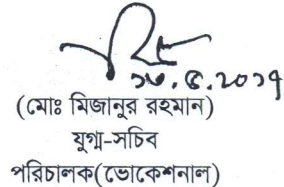 ১৬.৫.২০১৭
(মোঃ মিজানুর রহমান)
যুগ্ম-সচিব
পরিচালক(ভোকেশনাল)